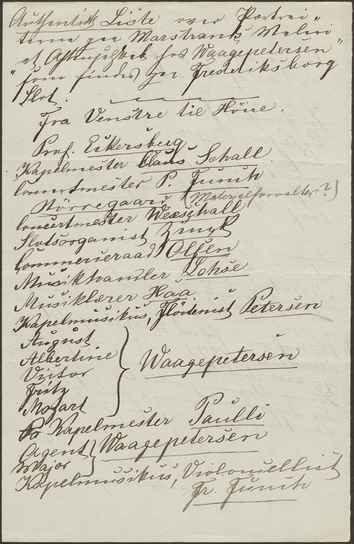 Authentisk Liste over Portrai-
terne paa Marstrands Maleri
"et Aftenselskab hos Waagepetersen"
som findes paa Frederiksborg
Slot.
Fra Venstre til Höire.
Prof. Eckersberg
Kapelmester Claus Schall
Concertmester P. Funch
Nörregaard (Materialforvalter?)
Concertmester Wexschall
Slotsorganist Zinck
Commerceraad Olsen
Musikhandler Lohse
Musiklærer Haa
Kapelmusikus, Flöitenist Petersen
August
Albertine
Vigtor
Fritz
Mozart
Waagepetersen
Kapelmester Paulli
Agent
Major
Waagepetersen
Kapelmusikus, Violoncellist
Fr. Funch